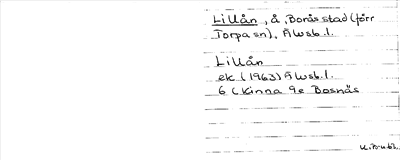 Lillån, å, Borås stad (förr
Torpa sn), Älvsb. l.
Lillån
ek (1963) Älvsb. l.
6 (Kinna 9e Bosnäs